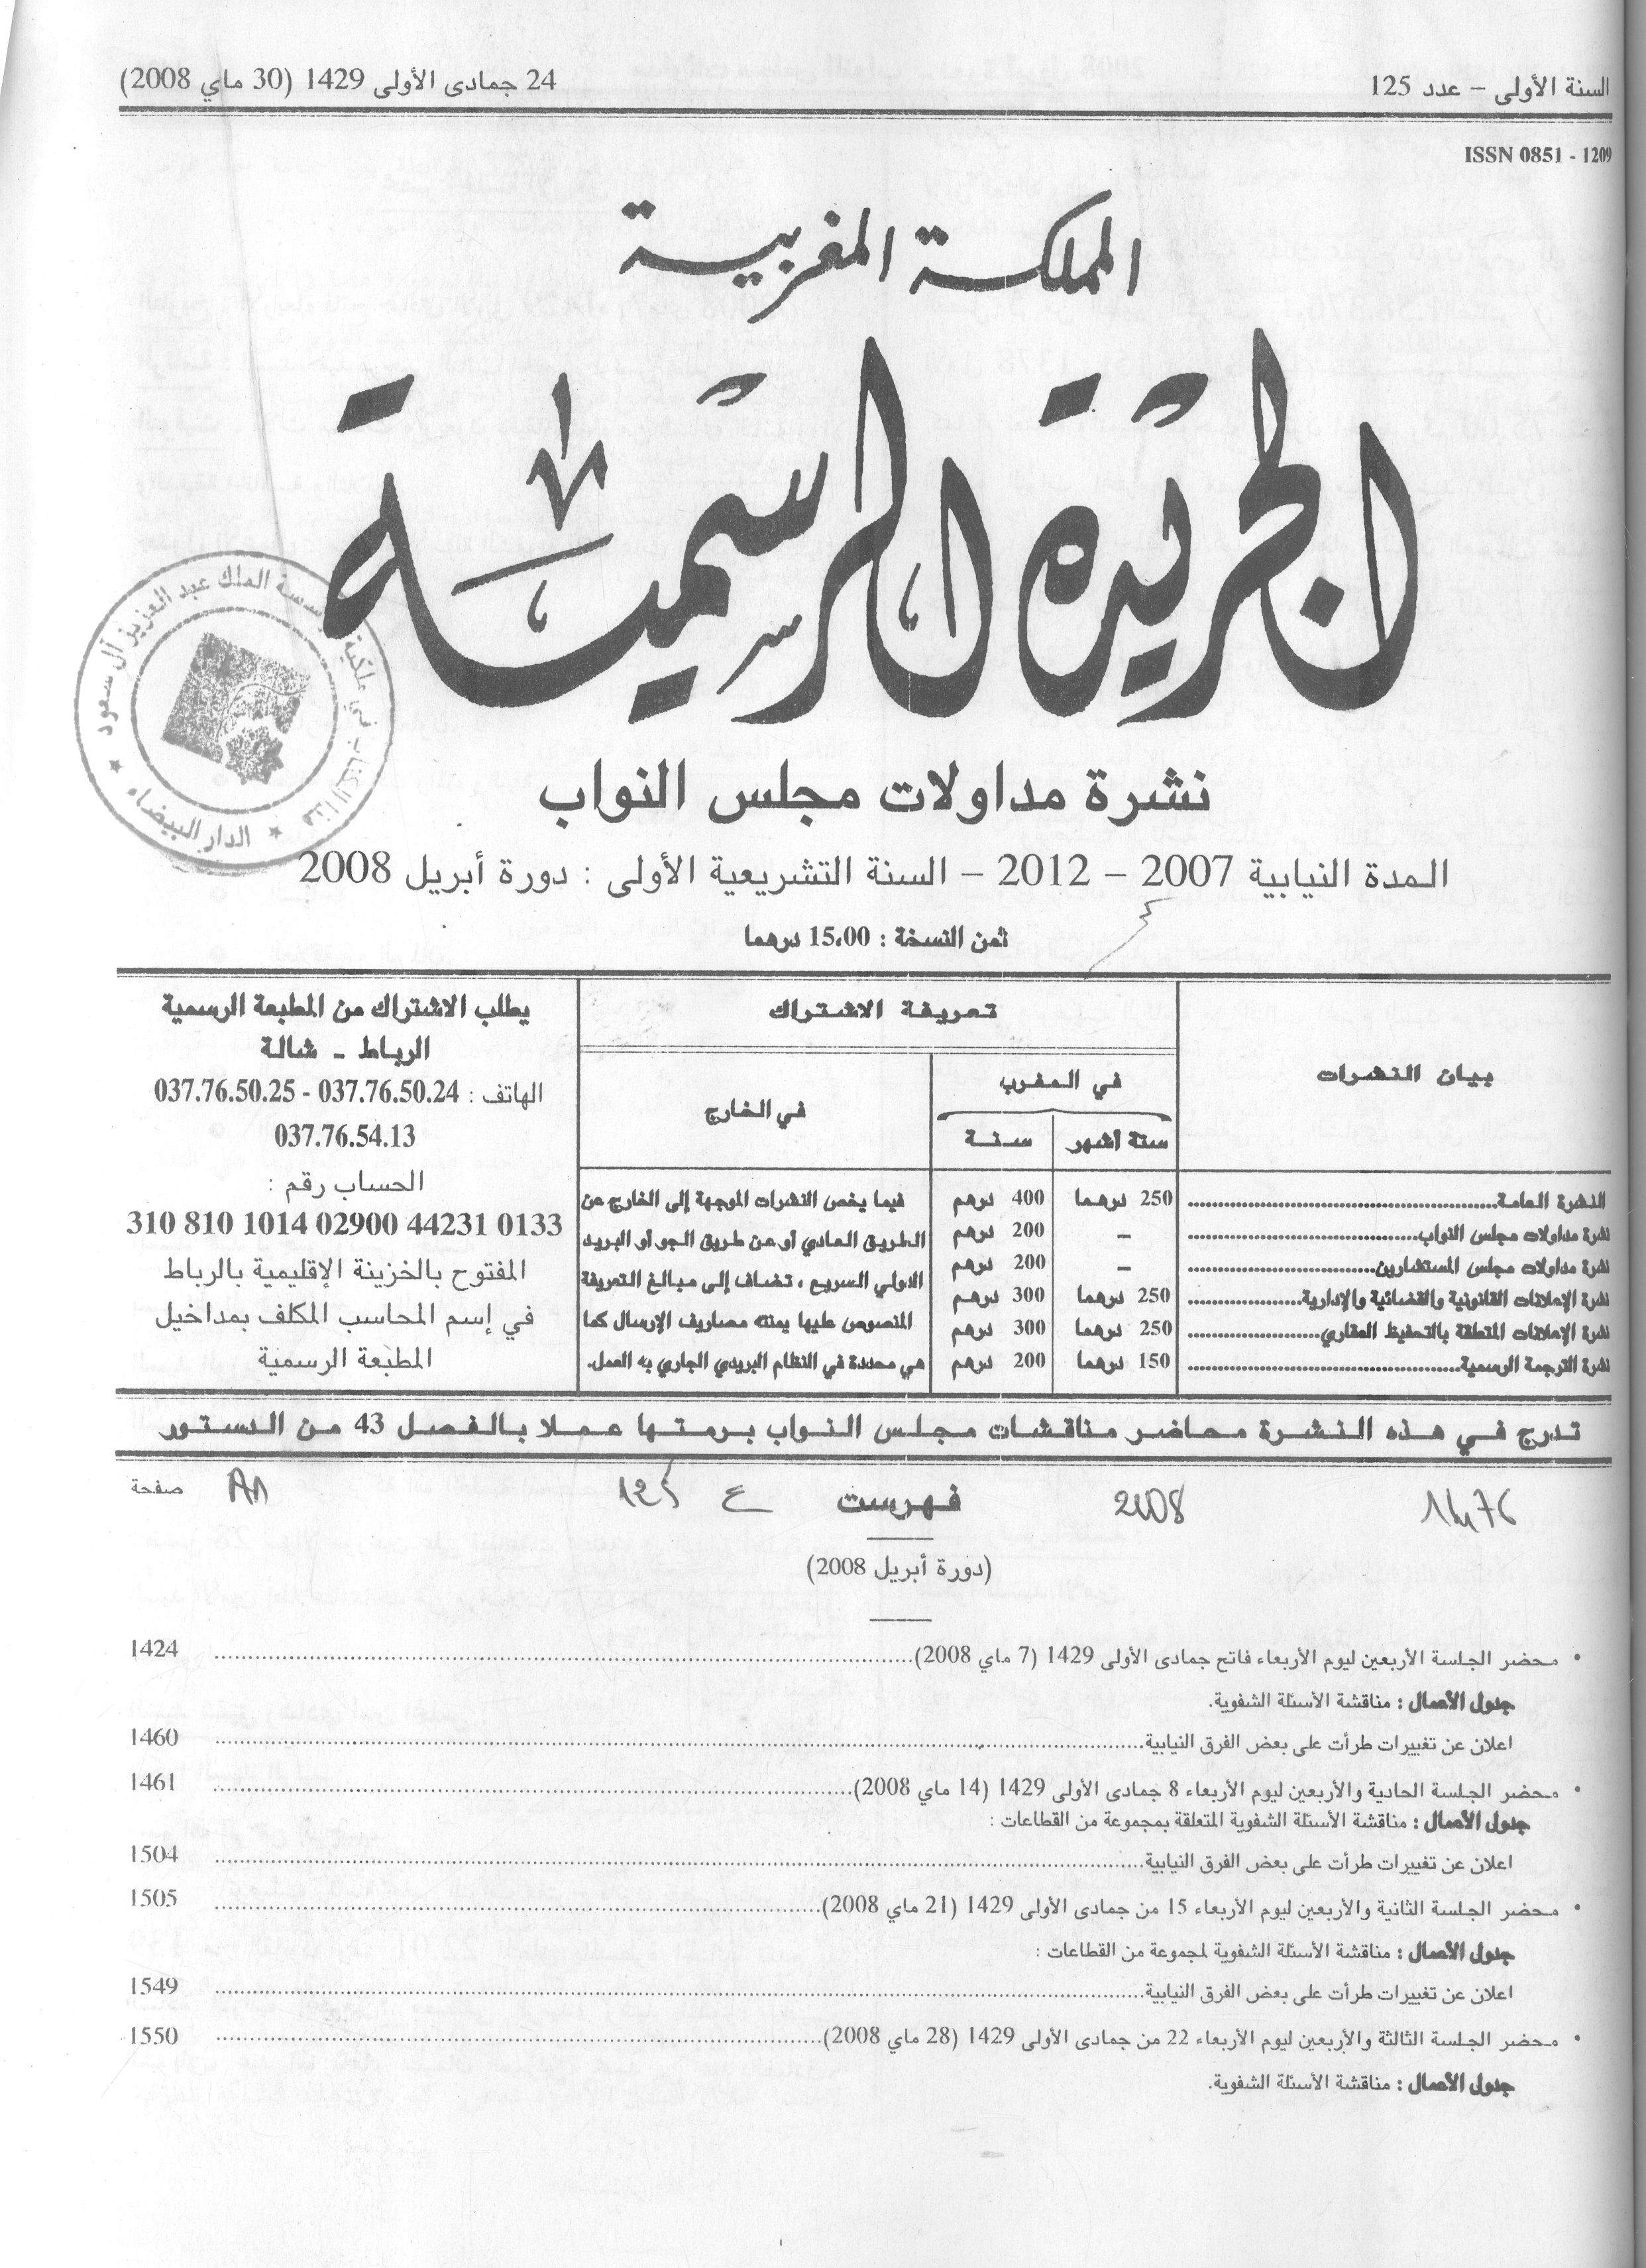 السنة الأولى – عدد 125
24 جمادى الأولى 1429 (30 ماي 2008)
ISSN 0851 - 1209
المملكة المغربية
الجريدة الرسمية
نشرة مداولات مجلس النواب
المدة النيابية 2007 – 2012 – السنة التشريعية الأولى : دورة أبريل 2008
ثمن النسخة : 15،00 درهما
بيان النشرات
تعريفة الاشتراك
في المغرب
ستة أشهر
سنة
في الخارج
النشرة العامة 250 درهما 400 درهم
نشرة مداولات مجلس النواب – 200 درهم
نشرة مداولات مجلس المستشارين – 200 درهم
نشرة الإعلانات القانونية والقضائية والإدارية 250 درهما 300 درهم
نشرة الإعلانات المتعلقة بالتحفيظ العقاري 250 درهما 300 درهم
نشرة الترجمة الرسمية 150 درهما 200 درهم
فيما يخص النشرات الموجهة إلى الخارج عن
الطريق العادي أو عن طريق الجو أو البريد
الدولي السريع ، تضاف إلى مبالغ التعريفة
المنصوص عليها يمنته مصاريف الإرسال كما
هي محددة في النظام البريدي الجاري به العمل.
يطلب الاشتراك من المطبعة الرسمية
الرباط ـ شالة
الهاتف : 037.76.50.24 - 037.76.50.25
037.76.54.13
الحساب رقم :
310 810 1014 02900 44231 0133
المفتوح بالخزينة الإقليمية بالرباط
في إسم المحاسب المكلف بمداخيل
المطبعة الرسمية
تدرج في هذه النشرة محاضر مناقشات مجلس النواب برمتها عملا بالفصل 43 من الدستور
2008
فهرست
ع 125
صفحة
(دورة أبريل 2008)
• محضر الجلسة الأربعين ليوم الأربعاء فاتح جمادى الأولى 1429 (7 ماي 2008) 1424
جدول الأعمال : مناقشة الأسئلة الشفوية.
اعلان عن تغييرات طرأت على بعض الفرق النيابية 1460
• محضر الجلسة الحادية والأربعين ليوم الأربعاء 8 جمادى الأولى 1429 (14 ماي 2008) 1461
جدول الأعمال : مناقشة الأسئلة الشفوية المتعلقة بمجموعة من القطاعات :
اعلان عن تغييرات طرأت على بعض الفرق النيابية 1504
• محضر الجلسة الثانية والأربعين ليوم الأربعاء 15 من جمادى الأولى 1429 (21 ماي 2008) 1505
جدول الأعمال : مناقشة الأسئلة الشفوية لمجموعة من القطاعات :
اعلان عن تغييرات طرأت على بعض الفرق النيابية 1549
• محضر الجلسة الثالثة والأربعين ليوم الأربعاء 22 من جمادى الأولى 1429 (28 ماي 2008) 1550
جدول الأعمال : مناقشة الأسئلة الشفوية.